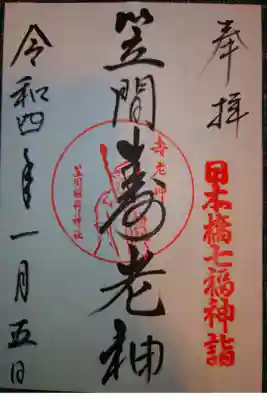 奉拝
日本橋七福神詣
笠間寿老神
寿老神
笠間稲荷神社
令和四年一月五日